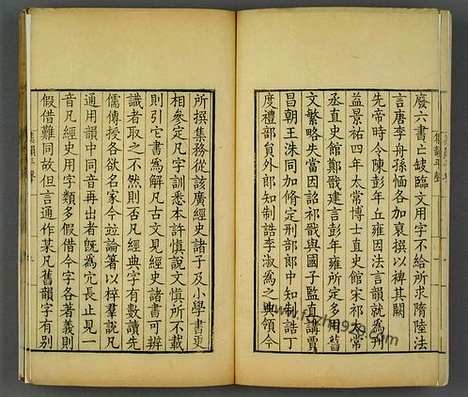 廢六書亡缺臨文用字不給所求隋陸法
言唐李舟孫愐各加裒撰以裨其闕
先帝時令陳彭年丘雍因法言韻就為刋
益景祐四年太常博士直史館宋祁太常
丞直史館鄭戩建言彭年雍所定多用舊
文繁略失當因詔祁戩與國子監直講賈
昌朝王洙同加脩定刑部郎中知制誥丁
度禮部員外郎知制誥李淑為之典領今
所撰集務從該廣經史諸子及小學書更
相參定凡字訓悉本許慎說文慎所不載
則引它書為解凡古文見經史諸書可辨
識者取之不然則否凡經典字有數讀先
儒傳授各欲名家今竝論著以梓羣說凡
通用韻中同音再出者旣為宂長止見一
音凡經史用字類多假借今字各著義則
假借難同故但言通作某凡舊韻字有別
集韻平聲一